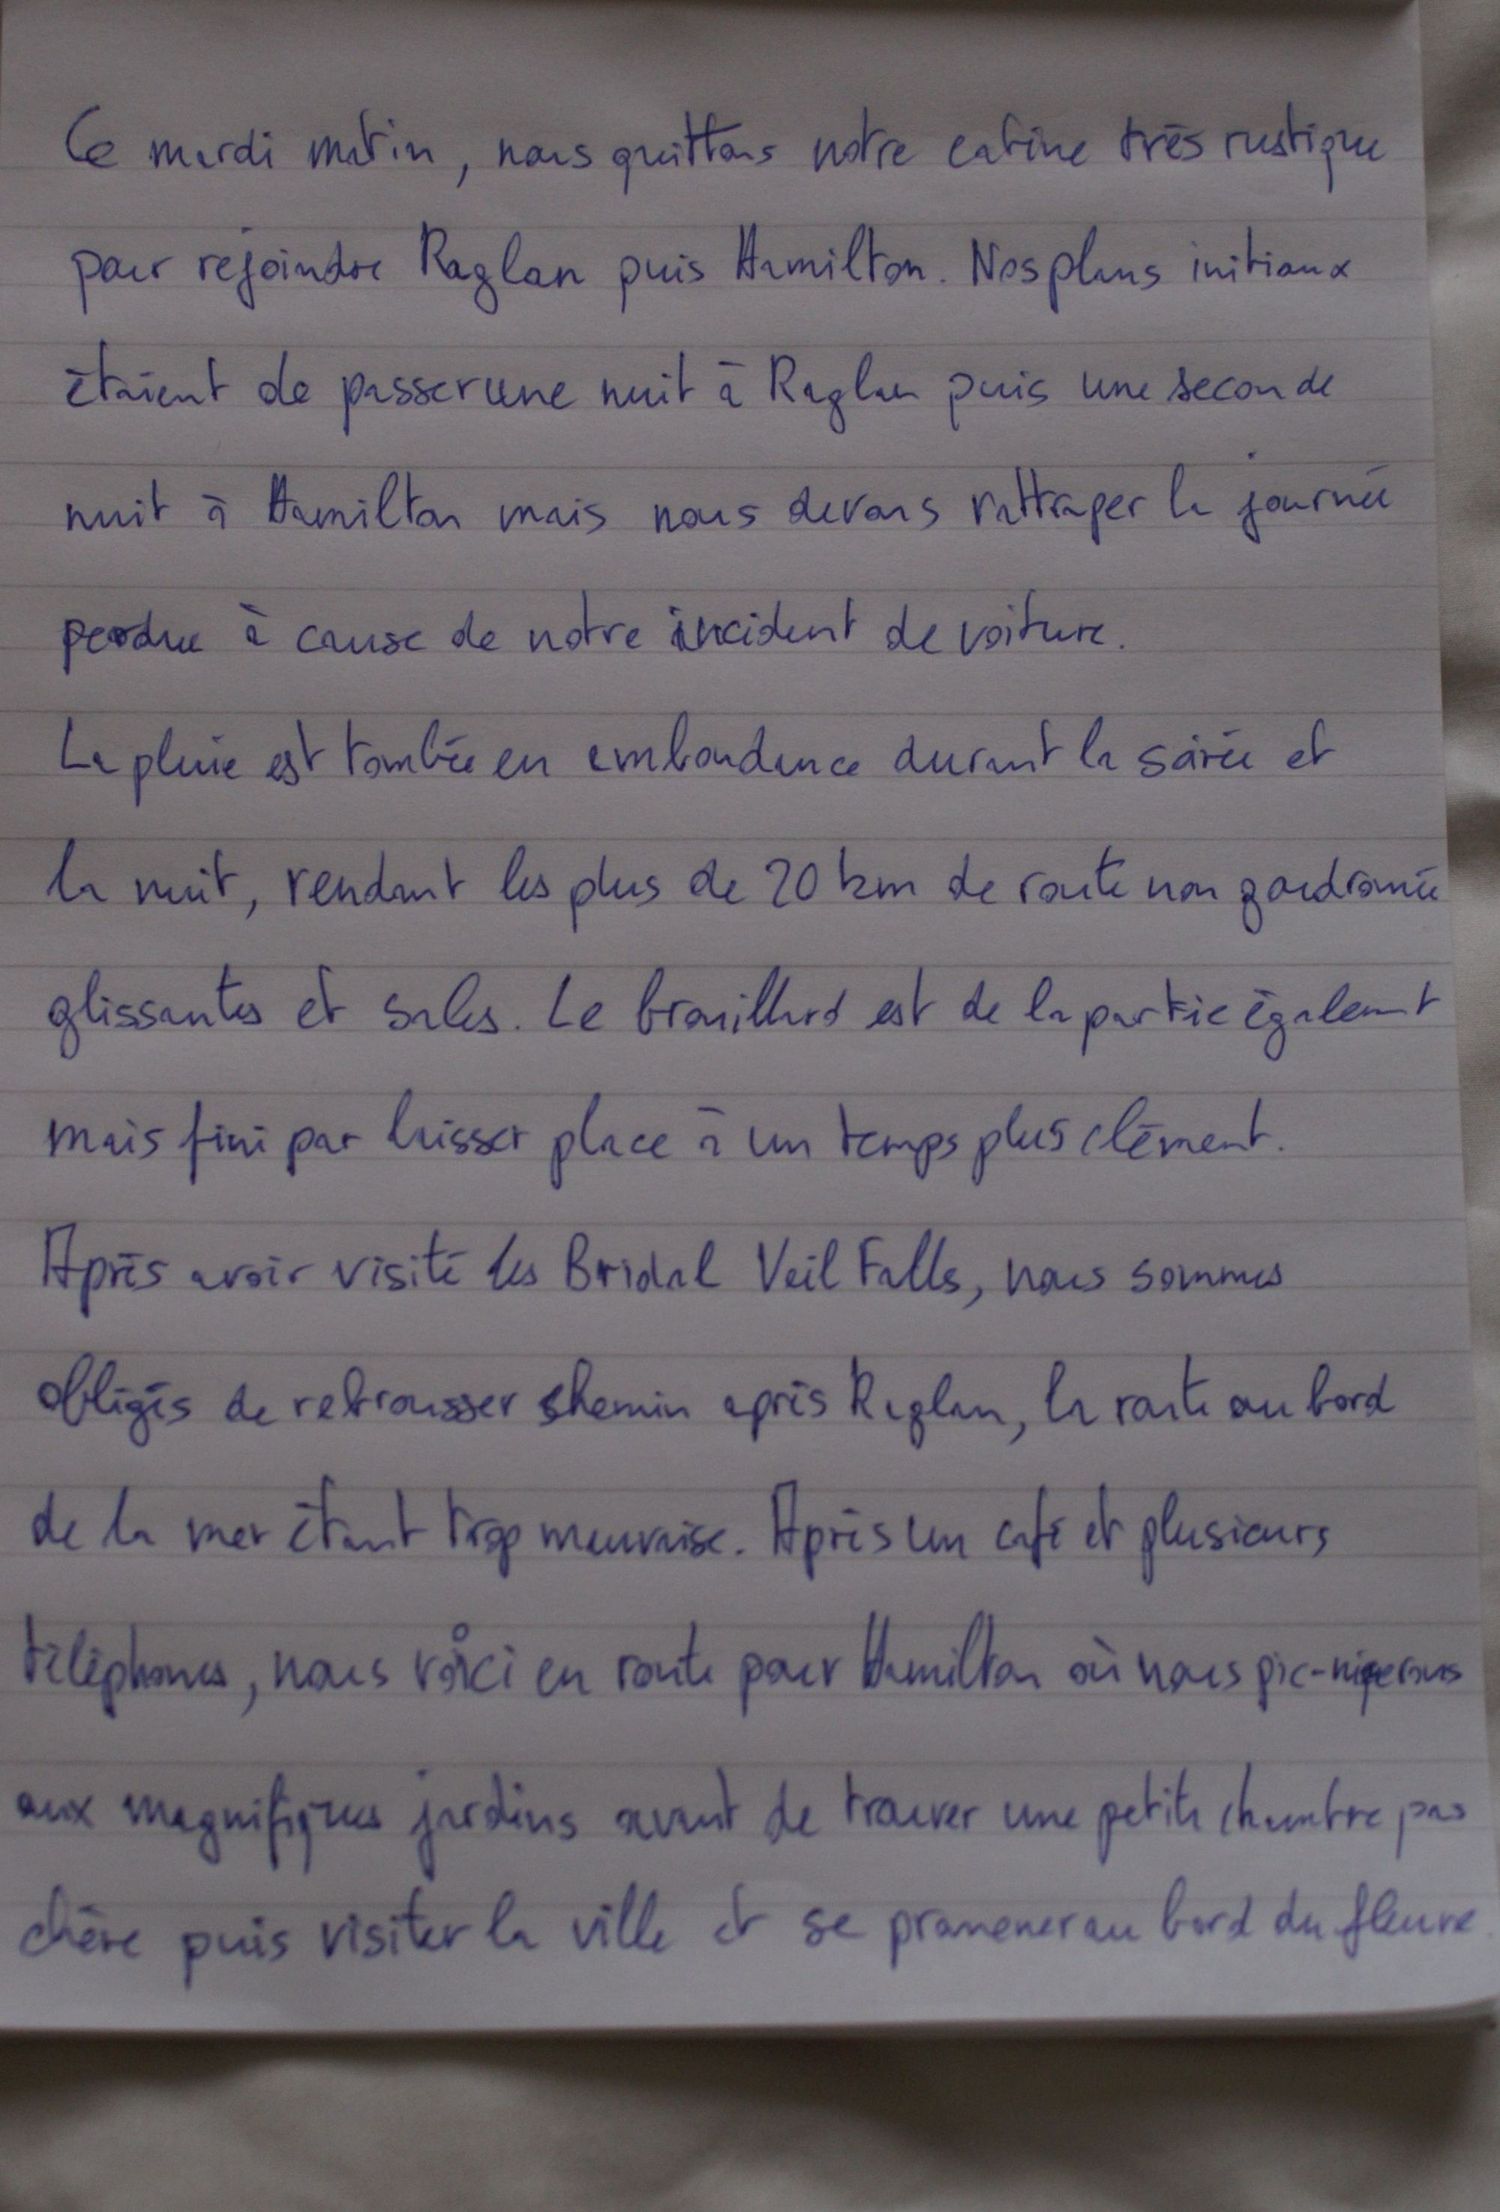 Ce mardi matin, nous quittons notre cabine très rustique
pour rejoindre Raglan puis Hamilton. Nos plans initiaux
étaient de passer une nuit à Raglan puis une seconde
nuit à Hamilton mais nous devons rattraper la journée
perdue à cause de notre incident de voiture.
La pluie est tombée en embondance durant la soirée et
la nuit, rendant les plus de 20 km de route non goudronnée
glissantes et sales. Le brouillard est de la partie également
mais fini par laisser place à un temps plus clément.
Après avoir visité les Bridal Veil Falls, nous sommes
obligés de retrousser chemin après Raglan, la route au bord
de la mer étant trop mauvaise. Après un café et plusieurs
téléphones, nous voici en route pour Hamilton où nous pic-niquerons
aux magnifiques jardins avant de trouver une petite chambre pas
chère puis visiter la ville et se promener au bord du fleuve.